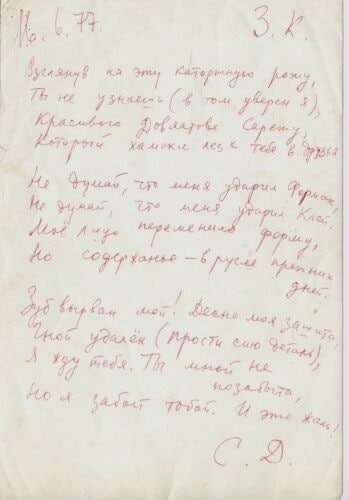 10.6.77. З. К.
Взглянув на эту каторжную рожу,
Ты не узнаешь (в том уверен я),
Красивого Довлатова Сережу,
Который хамски лез к тебе в друзья
Не думай, что меня ударил Форман,
Не думай, что меня ударил Клей,
Моё лицо переменило форму,
Но содержанье – в русле прежних
дней.
Зуб вырван мой! Десна моя зашита,
Гной удалён (прости сию деталь),
Я жду тебя. Ты мной не
позабыта,
Но я забыт тобой. И это жаль!
С. Д.